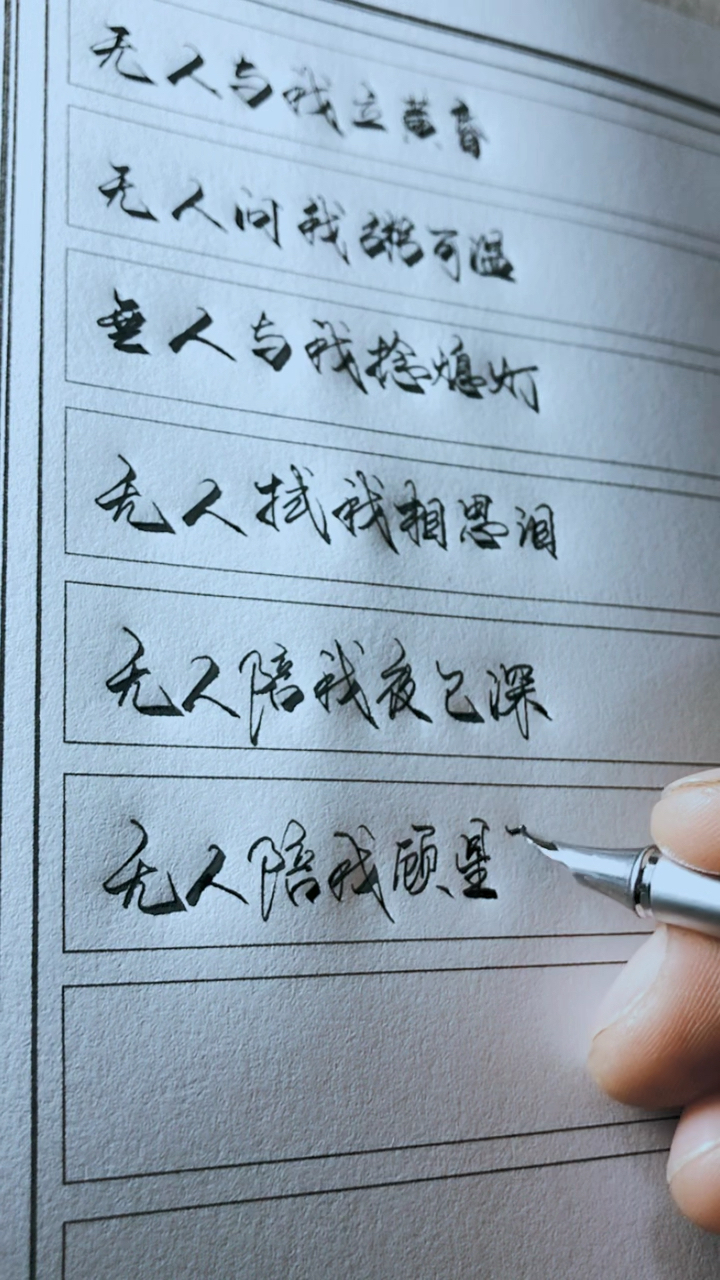 无人与我立黄昏
无人问我粥可温
無人与我捻熄灯
无人拭我相思泪
无人陪我夜已深
无人陪我顾星